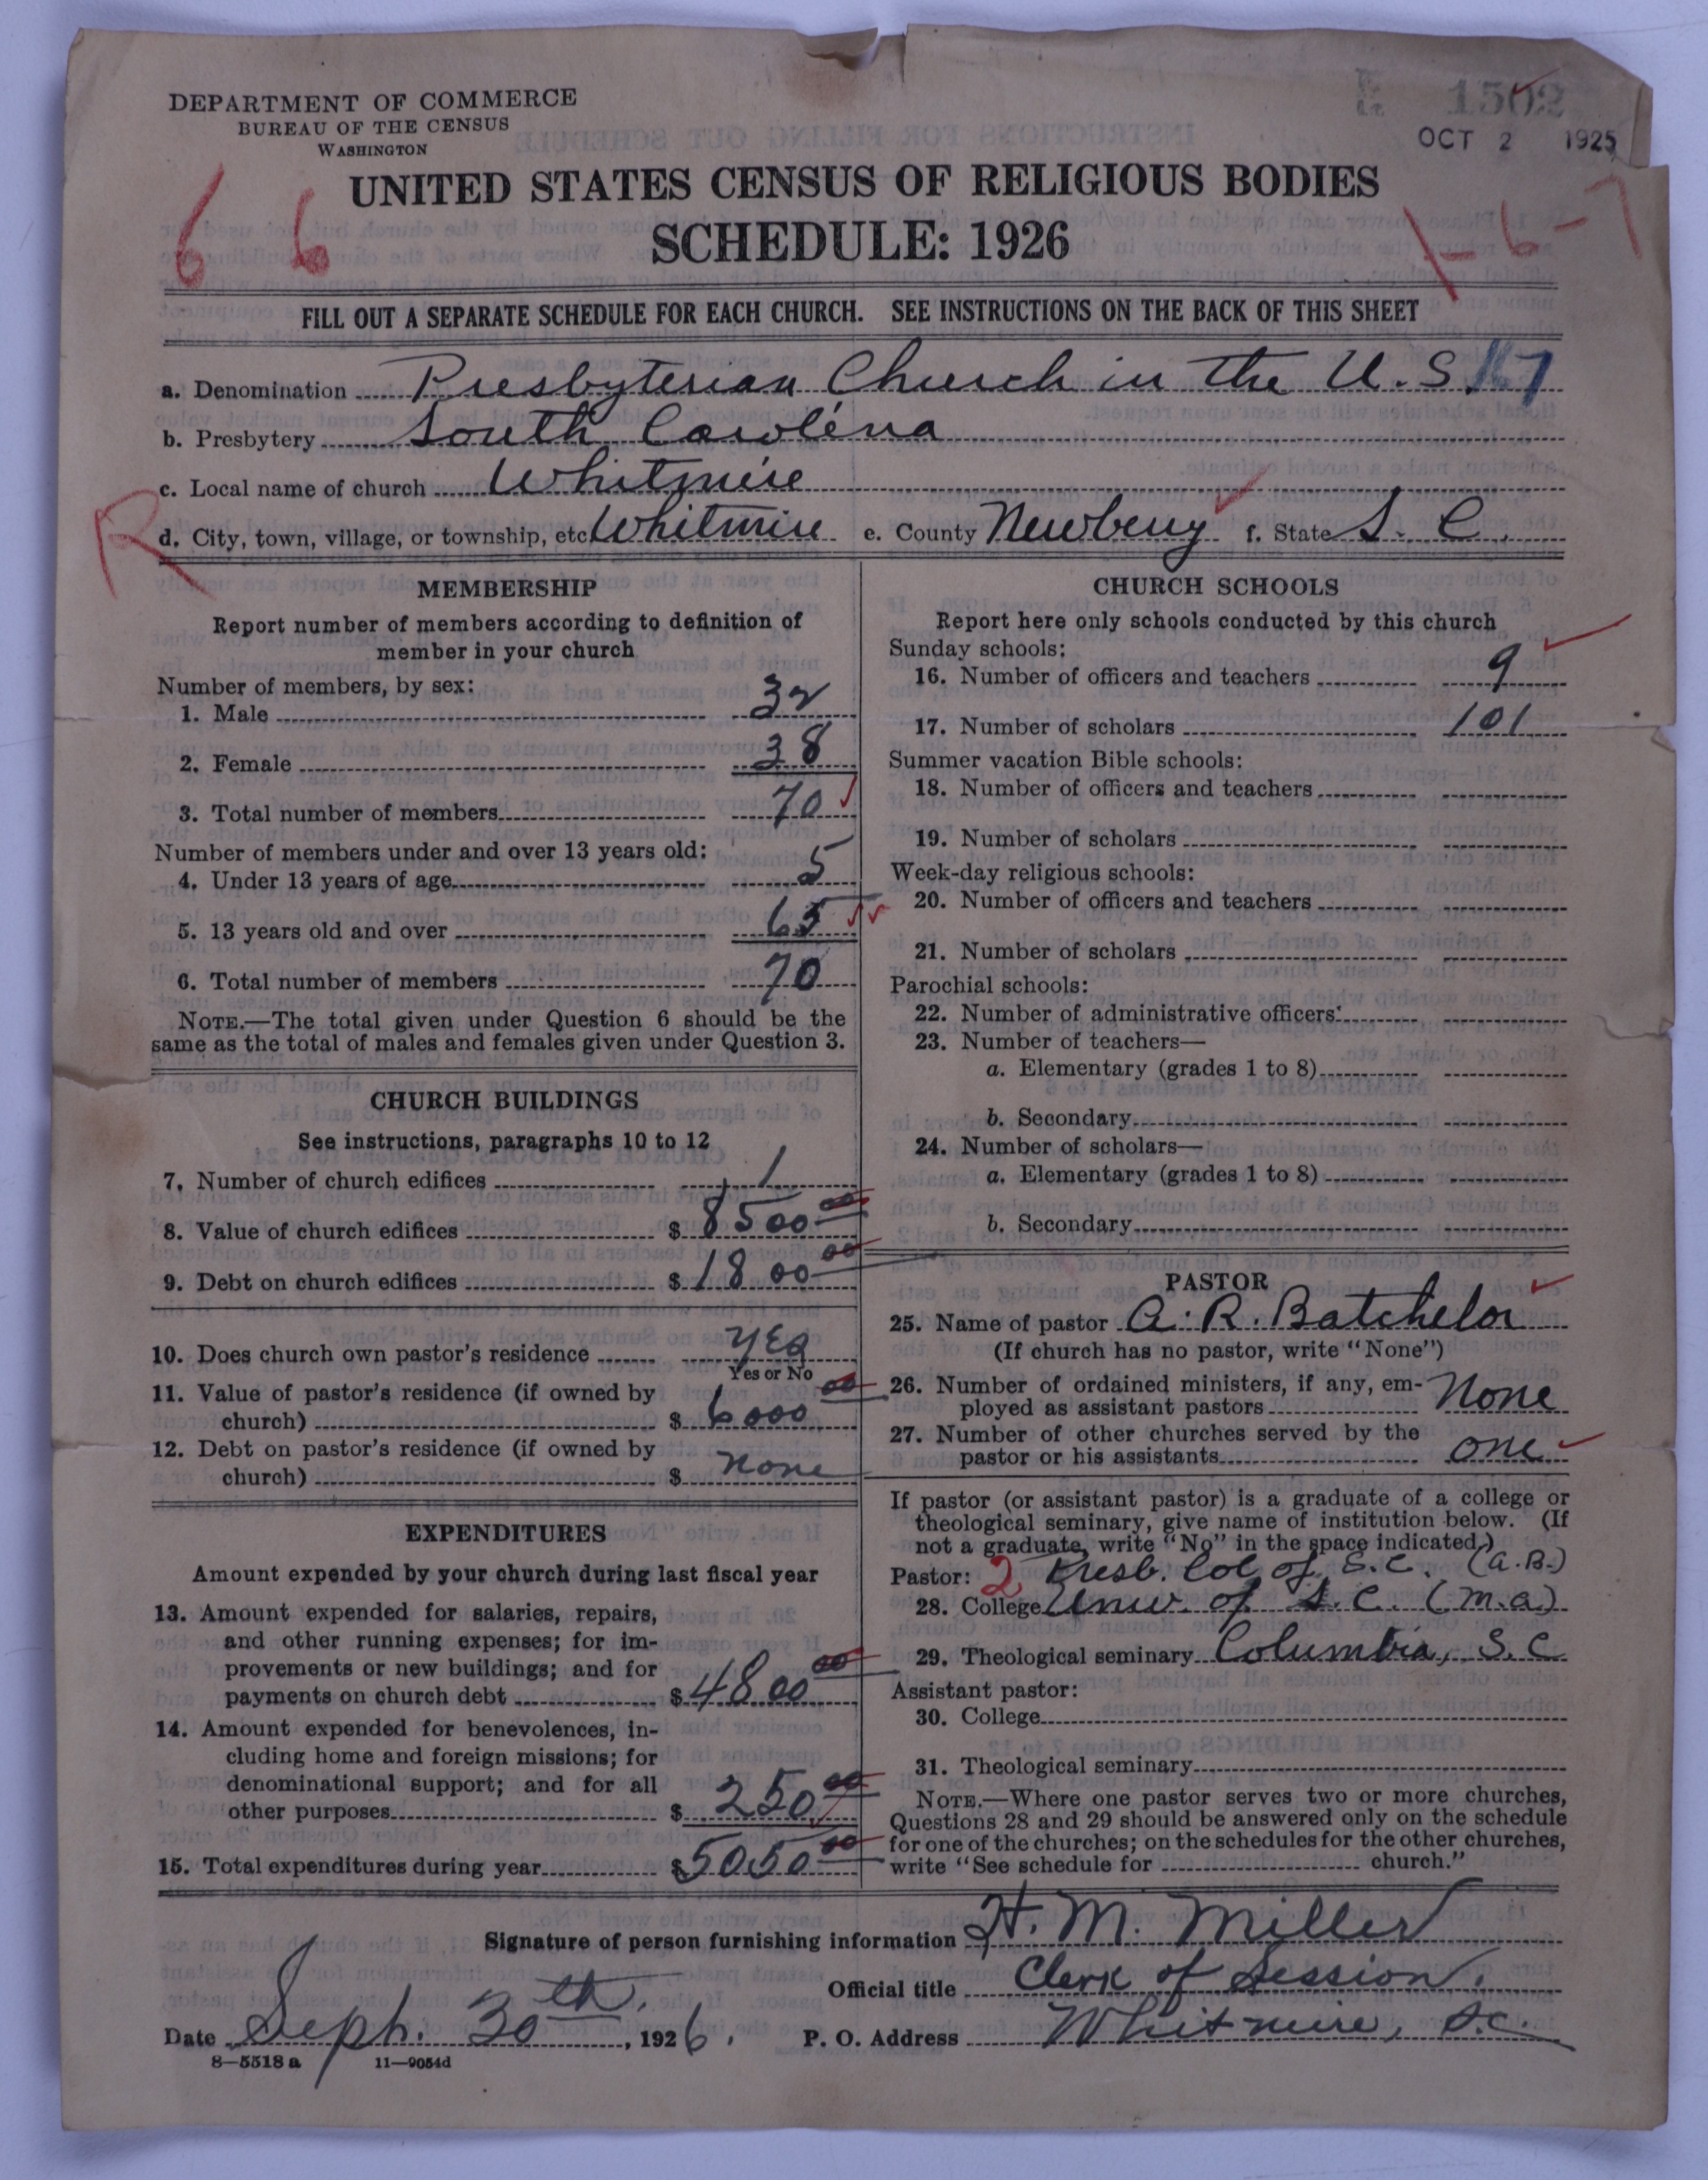 DEPARTMENT OF COMMERCE
BUREAU OF THE CENSUS
WASHINGTON
1502
OCT 2 1925
UNITED STATES CENSUS OF RELIGIOUS BODIES
SCHEDULE: 1926
6 6
1-6-7
FILL OUT A SEPARATE SCHEDULE FOR EACH CHURCH. SEE INSTRUCTIONS ON THE BACK OF THIS SHEET
a. Denomination Presbyterian Church in the U.S. 167
b. Presbytery South Carolina
c. Local name of church Whitmire
R
d. City, town, village, or township, etc. Whitmire e. County Newberry f. State S. C.
MEMBERSHIP
Report number of members according to definition of
member in your church
Number of members, by sex:
1. Male 32
2. Female 38
3. Total number of members 70
Number of members under and over 13 years old:
4. Under 13 years of age 5
5. 13 years old and over 65
6. Total number of members 70
NOTE.—The total given under Question 6 should be the
same as the total of males and females given under Question 3.
CHURCH BUILDINGS
See instructions, paragraphs 10 to 12
7. Number of church edifices 1
8. Value of church edifices $ 8500 00
9. Debt on church edifices $ 1800 00
10. Does church own pastor's residence Yes
Yes or No
11. Value of pastor's residence (if owned by
church) $ 6000 00
12. Debt on pastor's residence (if owned by
church) $ none
EXPENDITURES
Amount expended by your church during last fiscal year
13. Amount expended for salaries, repairs,
and other running expenses; for im-
provements or new buildings; and for
payments on church debt $ 4800 00
14. Amount expended for benevolences, in-
cluding home and foreign missions; for
denominational support; and for all
other purposes $ 250 00
15. Total expenditures during year $ 5050 00
CHURCH SCHOOLS
Report here only schools conducted by this church
Sunday schools:
16. Number of officers and teachers 9
17. Number of scholars 101
Summer vacation Bible schools:
18. Number of officers and teachers
19. Number of scholars
Week-day religious schools:
20. Number of officers and teachers
21. Number of scholars
Parochial schools:
22. Number of administrative officers
23. Number of teachers—
a. Elementary (grades 1 to 8)
b. Secondary
24. Number of scholars—
a. Elementary (grades 1 to 8)
b. Secondary
PASTOR
25. Name of pastor A. R. Batchelor
(If church has no pastor, write "None")
26. Number of ordained ministers, if any, em-
ployed as assistant pastors None
27. Number of other churches served by the
pastor or his assistants one
If pastor (or assistant pastor) is a graduate of a college or
theological seminary, give name of institution below. (If
not a graduate, write "No" in the space indicated.)
Pastor: 2 Presb. Col of S.C. (A.B.)
28. College Univ. of S.C. (M.A.)
29. Theological seminary Columbia, S.C
Assistant pastor:
30. College
31. Theological seminary
NOTE.—Where one pastor serves two or more churches,
Questions 28 and 29 should be answered only on the schedule
for one of the churches; on the schedules for the other churches,
write "See schedule for church."
Signature of person furnishing information H. M. Miller
Official title Clerk of Session.
Date Seph. 30th, 1926. P. O. Address Whitmire, S.C.
8—5518 a 11—9054d